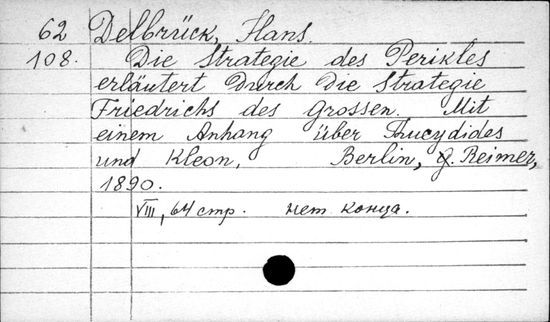 62 Delbrück, Hans.
108. Die Strategie des Perikles
erläutert durch die Strategie
Friedrichs des Grossen. Mit
einem Anhang über Thucydides
und Kleon, Berlin, G. Reimer,
1890.
VIII, 64 стр. нет конца.